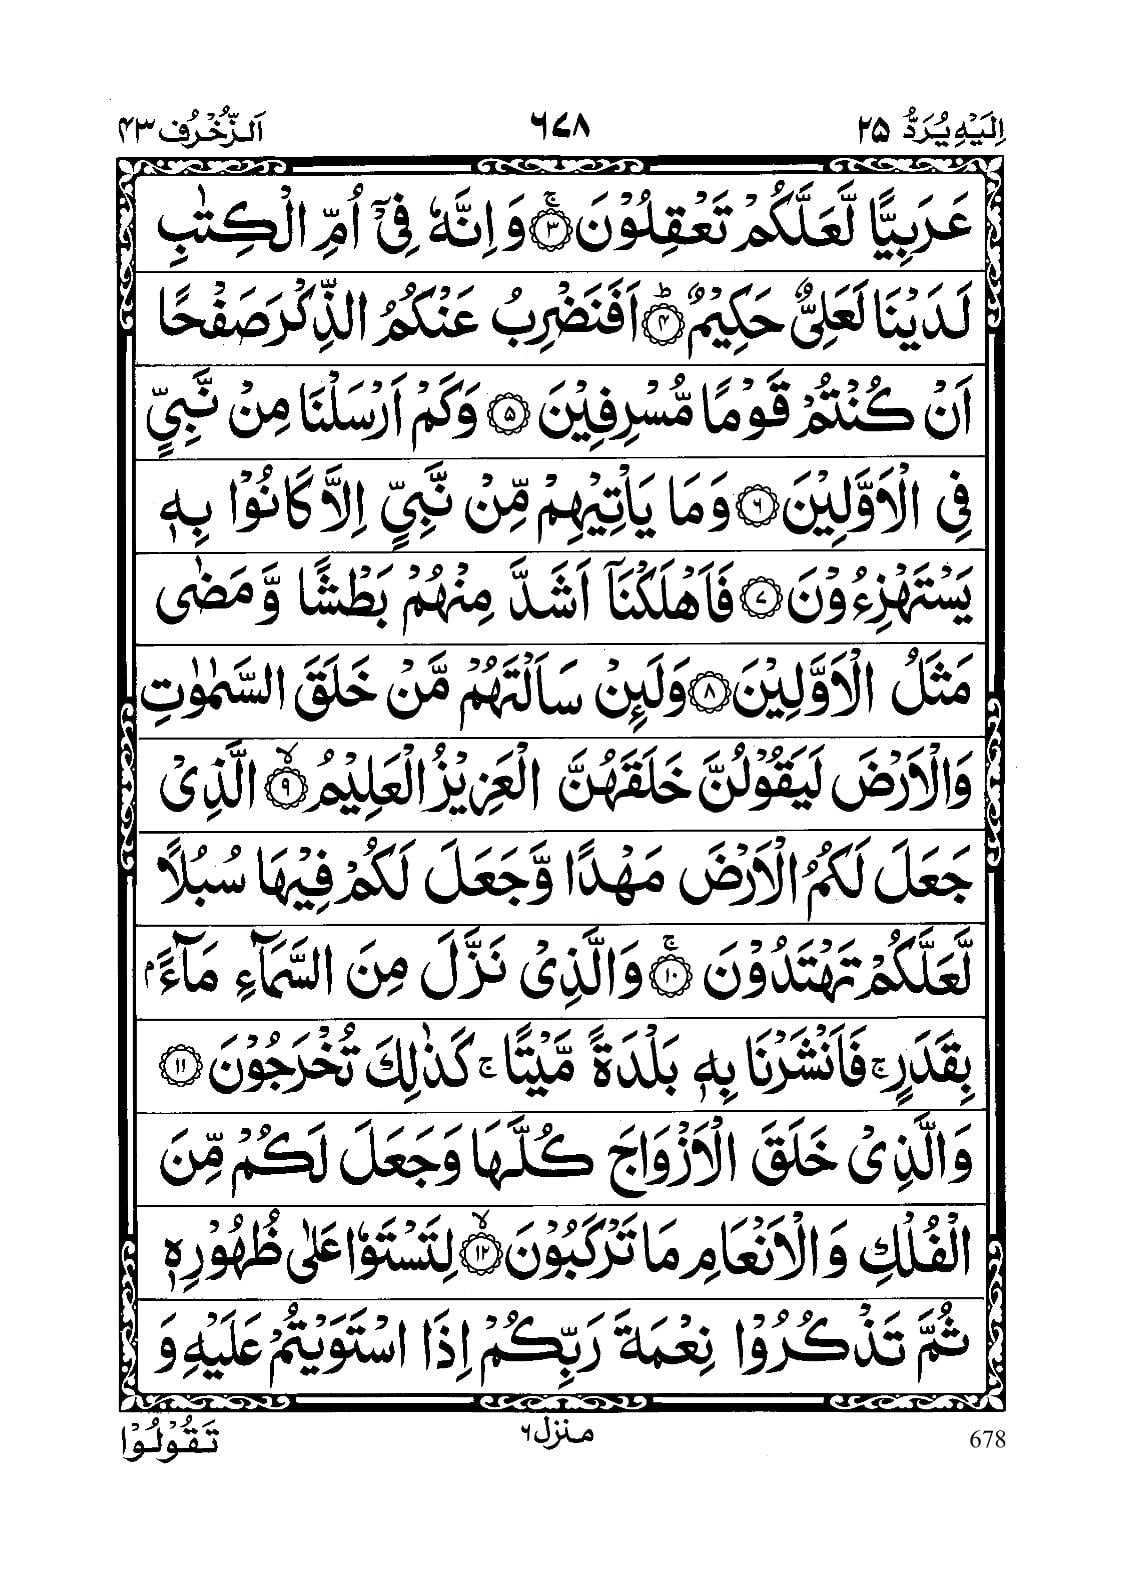 اِلَیْهِ یُرَدُّ ۲۵
۶۷۸
اَلزُّخْرُف ۴۳
عَرَبِیًّا لَّعَلَّكُمْ تَعْقِلُوْنَۚ ﴿۳﴾ وَ اِنَّهٗ فِیْۤ اُمِّ الْكِتٰبِ
لَدَیْنَا لَعَلِیٌّ حَكِیْمٌؕ ﴿۴﴾ اَفَنَضْرِبُ عَنْكُمُ الذِّكْرَ صَفْحًا
اَنْ كُنْتُمْ قَوْمًا مُّسْرِفِیْنَ ﴿۵﴾ وَ كَمْ اَرْسَلْنَا مِنْ نَّبِیٍّ
فِی الْاَوَّلِیْنَ ﴿۶﴾ وَ مَا یَاْتِیْهِمْ مِّنْ نَّبِیٍّ اِلَّا كَانُوْا بِهٖ
یَسْتَهْزِءُوْنَ ﴿۷﴾ فَاَهْلَكْنَاۤ اَشَدَّ مِنْهُمْ بَطْشًا وَّ مَضٰی
مَثَلُ الْاَوَّلِیْنَ ﴿۸﴾ وَ لَىِٕنْ سَاَلْتَهُمْ مَّنْ خَلَقَ السَّمٰوٰتِ
وَ الْاَرْضَ لَیَقُوْلُنَّ خَلَقَهُنَّ الْعَزِیْزُ الْعَلِیْمُۙ ﴿۹﴾ الَّذِیْ
جَعَلَ لَكُمُ الْاَرْضَ مَهْدًا وَّ جَعَلَ لَكُمْ فِیْهَا سُبُلًا
لَّعَلَّكُمْ تَهْتَدُوْنَۚ ﴿۱۰﴾ وَ الَّذِیْ نَزَّلَ مِنَ السَّمَآءِ مَآءًۢ
بِقَدَرٍۚ فَاَنْشَرْنَا بِهٖ بَلْدَةً مَّیْتًاۚ كَذٰلِكَ تُخْرَجُوْنَ ﴿۱۱﴾
وَ الَّذِیْ خَلَقَ الْاَزْوَاجَ كُلَّهَا وَ جَعَلَ لَكُمْ مِّنَ
الْفُلْكِ وَ الْاَنْعَامِ مَا تَرْكَبُوْنَۙ ﴿۱۲﴾ لِتَسْتَوٗا عَلٰی ظُهُوْرِهٖ
ثُمَّ تَذْكُرُوْا نِعْمَةَ رَبِّكُمْ اِذَا اسْتَوَیْتُمْ عَلَیْهِ وَ
678
منزل ۶
تَقُوْلُوْا